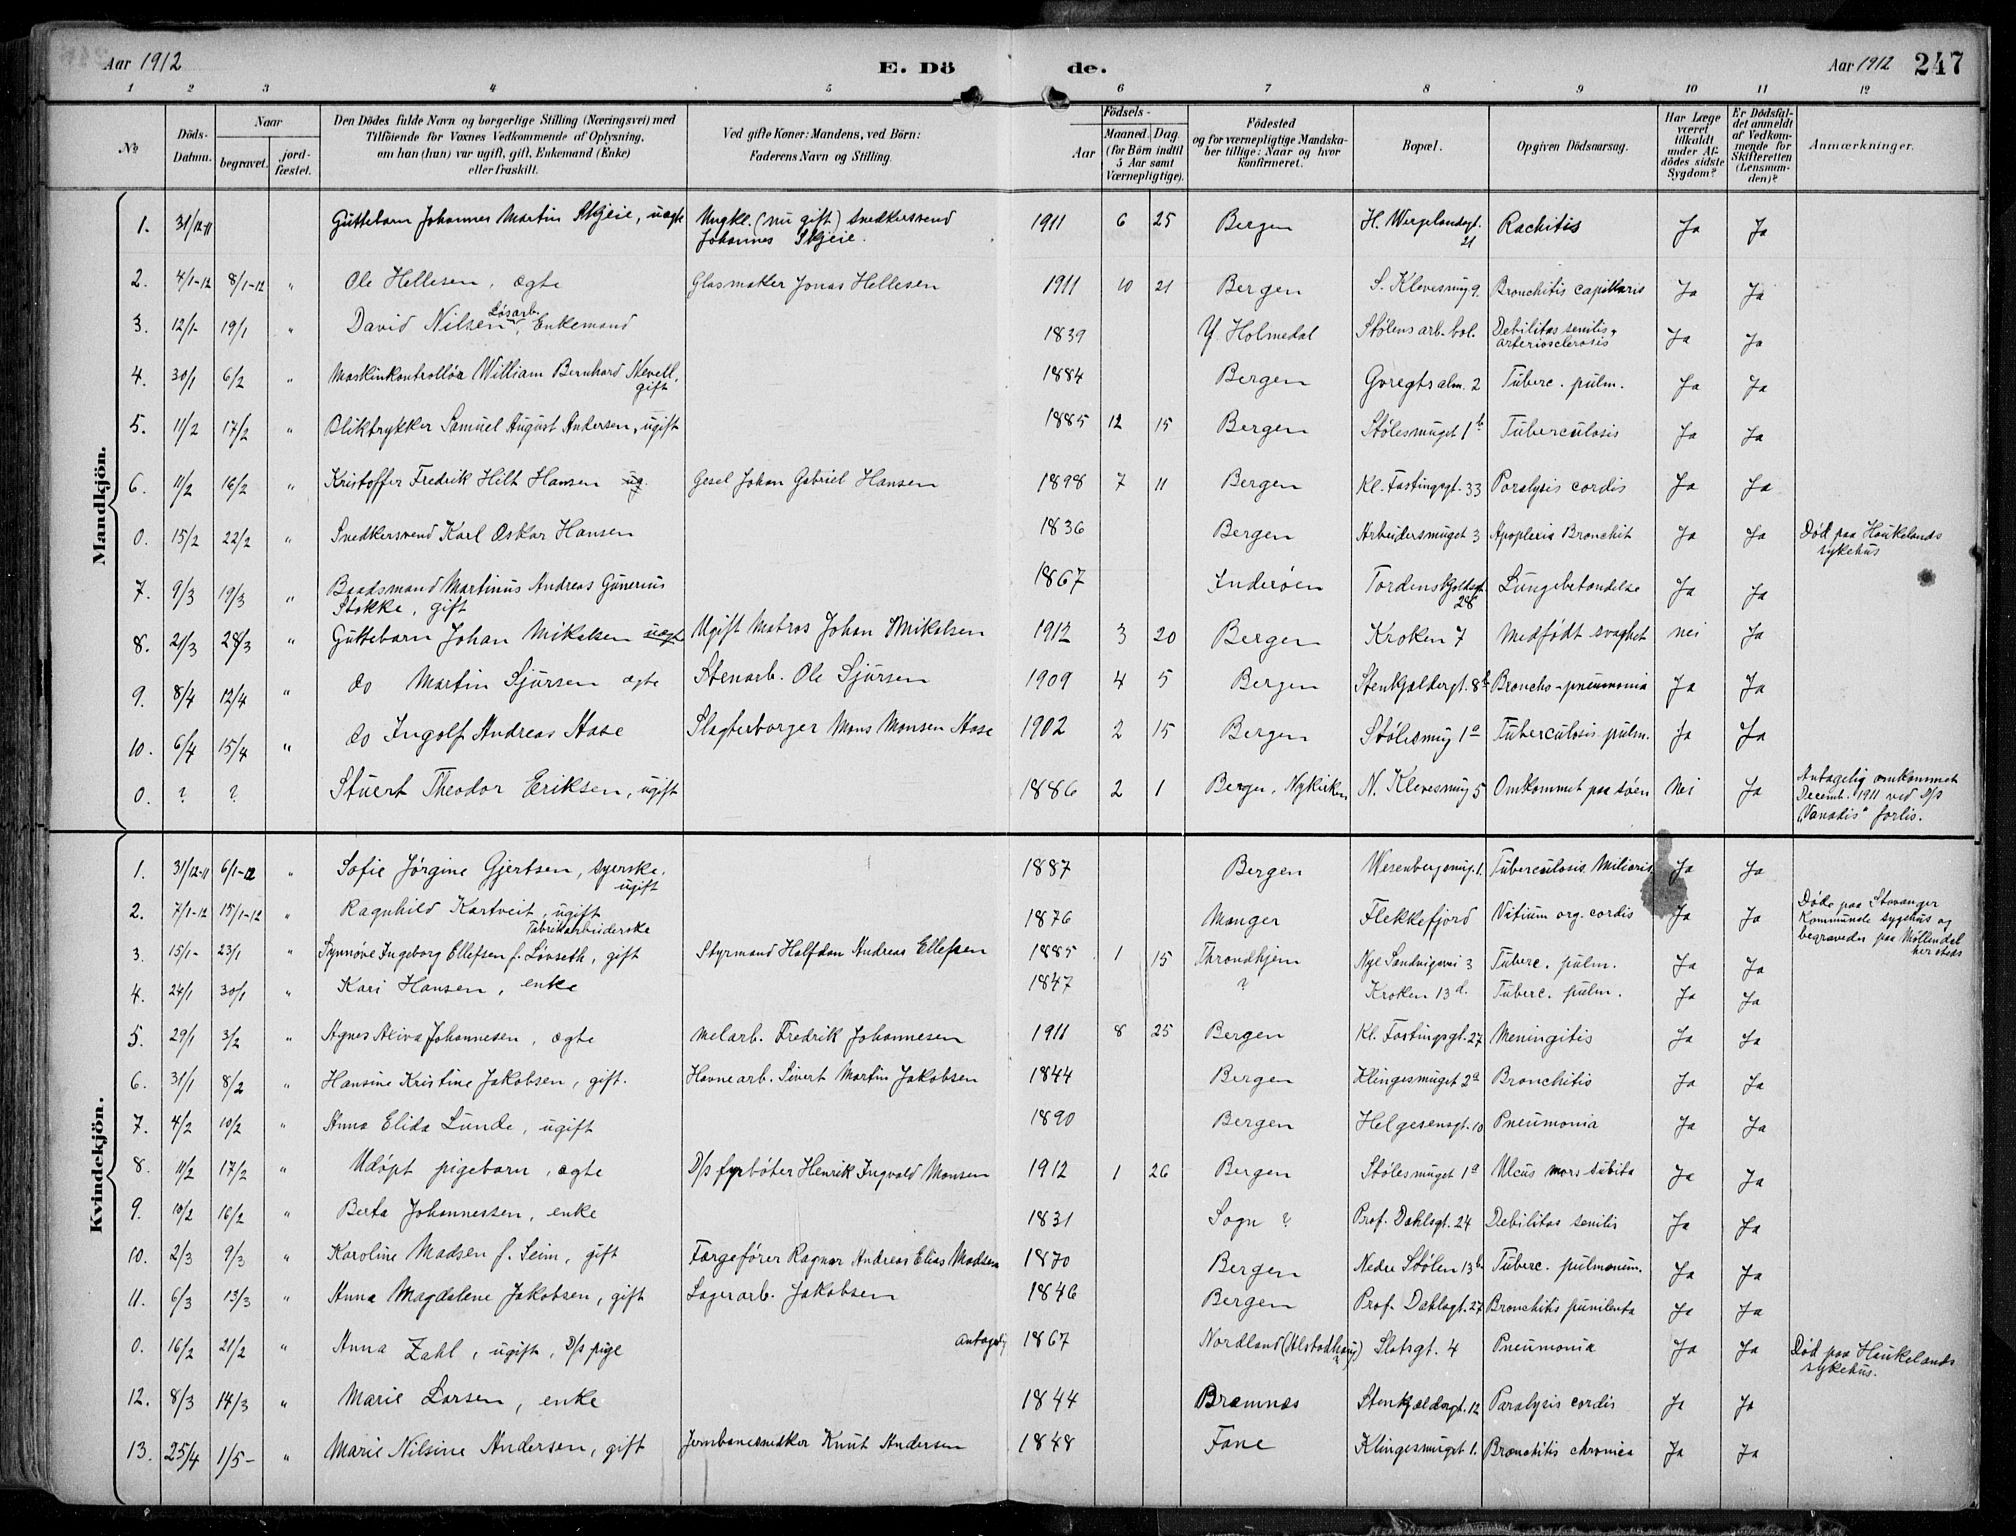 Aar 1912 E. Dö de. Aar 1912 247
1 2 3 4 5 6 7 8 9 10 11 12
No. Döds-Datum. Naar begravet. jord-fæstet. Den Dödes fulde Navn og borgerlige Stilling (Næringsvei) med Tilföiende for Voxnes Vedkommende af Oplysning, om han (hun) var ugift, gift, Enkemand (Enke) eller fraskilt. Ved gifte Koner: Mandens, ved Börn: Faderens Navn og Stilling. Födsels- Aar Maaned. Dag. (for Börn indtil 5 Aar samt Værnepligtige). Födested og for værnepligtige Mandskaber tillige: Naar og hvor konfirmeret. Bopæl. Opgiven Dödsaarsag. Har Læge været tilkaldt under Afdödes sidste Sygdom? Er Dödsfaldet anmeldt af Vedkommende for Skifteretten (Lensmanden)? Anmærkninger.
Mandkjön.
1. 31/12-11 Guttebarn Johannes Martin Skjeie, uægte Ungkl. (nu gift) snedkersvend Johannes Skjeie. 1911 6 25 Bergen H. Wergelandsgt. 21 Rachitis Ja Ja
2. 4/1-12 8/1-12 " Ole Hellesen, ægte Glasmaker Jonas Hellesen 1911 10 21 Bergen S. Klevesmug 9. Bronchitis capillaris Ja Ja
3. 12/1- 19/1 " David Nilsen Løsarb., Enkemand 1839 Y. Holmedal Stølens arb. bol. Debilitas senilis, arteriosclerosis Ja Ja
4. 30/1 6/2 " Maskinkontrollør William Bernhard Nevell, gift 1884 Bergen Tuberc. pulm. Ja Ja
5. 11/2 17/2 " Bliktrykker Samuel August Andersen, ugift 1885 12 15 Bergen Stølesmuget 1b Tuberculosis Ja Ja
6. 11/2 16/2 " Kristoffer Fredrik Hilt Hansen ug. Gesel Johan Gabriel Hansen 1898 7 11 Bergen Kl. Fastingsgt. 33 Paralysis cordis Ja Ja
0. 15/2 22/2 " Snedkersvend Karl Oskar Hansen 1836 Bergen Arbeidersmuget 3 Apoplexia Bronchit Ja Ja Død paa Haukelands sykehus
7. 9/3 19/3 " Baadsmand Martinus Andreas Gunerius Stokke, gift 1867 Inderøen Tordenskjoldsgt. 28 Lungebetændelse Ja Ja
8. 21/3 28/3 " Guttebarn Johan Mikalsen uægt Ugift Matros Johan Mikalsen 1912 3 20 Bergen Kroken 7 Medfødt svaghet nei Ja
9. 8/4 12/4 " do Martin Sjursen ægte Stenarb. Ole Sjursen 1909 4 5 Bergen Stenkjeldergt. 8b Broncho-pneumonia Ja Ja
10. 6/4 15/4 " do Ingolf Andreas Hase Slagterborger Mons Monsen Hase 1902 2 15 Bergen Stølesmug 1a Tuberculosis pulm. Ja Ja
0. ? ? Stuert Theodor Eriksen, ugift 1886 2 1 Bergen, Nykirken N. Klevesmug 5 Omkommet paa søen Nei Ja Antagelig omkommet Decemb. 1911 ved D/s "Vanadis" forlis.
Kvindekjön.
1. 31/12-11 6/1-12 " Sofie Jørgine Gjertsen, syerske, ugift 1887 Bergen Wesenbergsmug. 1. Tuberculosis Miliaris Ja Ja
2. 7/1-12 15/1-12 " Ragnhild Kartveit, ugift Fabrikarbeiderske 1876 Manger Flekkefjord Vitium org. cordis Ja Ja Døde paa Stavanger Kommunale sygehus og begravedes paa Møllendal hersteds
3. 15/1- 23/1 " Synnøve Ingeborg Ellefsen f. Løvseth, gift Styrmand Halfdan Andreas Ellefsen 1885 1 15 Throndhjem Nye Sandvigsvei 3 Tuberc. pulm. Ja Ja
4. 24/1 30/1 " Kari Hansen, enke 1847 ? Kroken 13 d. Tuberc. pulm. Ja Ja
5. 29/1 3/2 " Agnes Johannesen, ægte Melarb. Fredrik Johannesen 1911 8 25 Bergen Kl. Fastingsgt. 27 Meningitis Ja Ja
6. 31/1 8/2 " Hansine Kristine Jakobsen, gift. Havnearb. Sivert Martin Jakobsen 1844 Bergen Klingesmuget 2a Bronchitis Ja Ja
7. 4/2 10/2 " Anna Elida Lunde, ugift 1890 Bergen Helgesensgt. 10 Pneumonia Ja Ja
8. 11/2 17/2 " Udøpt pigebarn, ægte D/s fyrbøter Henrik Ingvald Monsen 1912 1 26 Bergen Stølesmuget 1a Ulcus mors subita Ja Ja
9. 10/2 16/2 " Berta Johannessen, enke 1831 Sogn ? Prof. Dahlsgt. 24 Debilitas senilis Ja Ja
10. 2/3 9/3 " Karoline Madsen f. Seim, gift Færgefører Ragnar Andreas Elias Madsen 1870 Bergen Nedre Stølen 13b Tuberc. pulmonum. Ja Ja
11. 6/3 13/3 " Anna Magdalene Jakobsen, gift Lagerarb. Jakobsen 1846 Bergen Prof. Dahlsgt. 27 Bronchitis purulenta Ja Ja
0. 16/2 21/2 " Anna Zahl, ugift, D/s pige antagelig 1867 Nordland (Alstadhaug) ? Slotsgt. 4 Pneumonia Ja Ja Død paa Haukelands sykehus.
12. 8/3 14/3 " Marie Larsen, enke 1844 Bremnes Stenkjeldergt. 12 Paralysis cordis Ja Ja
13. 25/4 1/5- " Marie Nilsine Andersen, gift Jernbanesnedker Knut Andersen 1848 Fane Klingesmuget 1. Bronchitis chronica Ja Ja